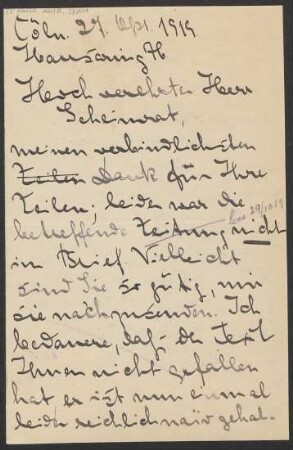 Cöln. 27. Okt. 1919
Hansaring 76
Hoch verehrter Herr
Geheimrat,
meinen verbindlichsten
Zeilen Dank für Ihre
Zeilen; leider war die
betreffende Zeitung nicht
im Brief. Vielleicht
sind Sie so gütig, mir
sie nachzusenden. Ich
bedauere, daß der Text
Ihnen nicht gefallen
hat er ist nun einmal
leider reichlich naiv gehal-